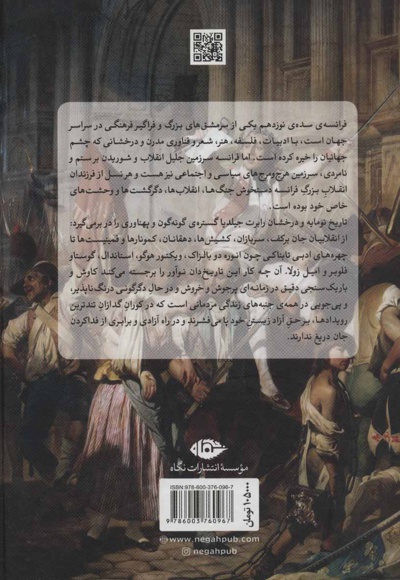 فرانسه‌ی سده‌ی نوزدهم یکی از سرمشق‌های بزرگ و فراگیر فرهنگی در سراسر
جهان است، با ادبیات، فلسفه، هنر، شعر و فناوری مدرن و درخشانی که چشم
جهانیان را خیره کرده است. اما فرانسه سرزمین جلیل انقلاب و شوریدن بر ستم و
نامردی، سرزمین هرج‌ومرج‌های سیاسی و اجتماعی نیز هست و هر نسل از فرزندان
انقلاب بزرگ فرانسه دستخوش جنگ‌ها، انقلاب‌ها، دگرگشت‌ها و وحشت‌های
خاص خود بوده است.
تاریخ نومایه و درخشان رابرت جیلدیا گستره‌ی گونه‌گون و پهناوری را در برمی‌گیرد:
از انقلابیان جان برکف، سربازان، کشیش‌ها، دهقانان، کمونارها و فمینیست‌ها تا
چهره‌های ادبی تابناکی چون انوره دو بالزاک، ویکتور هوگو، استاندال، گوستاو
فلوبر و امیل زولا. آن چه کار این تاریخ‌دان نوآور را برجسته می‌کند کاوش و
باریک‌سنجی دقیق در زمانه‌ای پرجوش و خروش و در حال دگرگونی درنگ‌ناپذیر،
و پی‌جویی در همه‌ی جنبه‌های زندگی مردمانی است که در کوران گدازان تندترین
رویدادها، بر حق آزاد زیستن خود پا می‌فشرند و در راه آزادی و برابری از فدا کردن
جان دریغ ندارند.
مؤسسهٔ انتشارات نگاه
ISBN: 978-600-376-096-7
9 786003 760967
۱۰۵۰۰۰ تومان
www.negahpub.com
negahpub